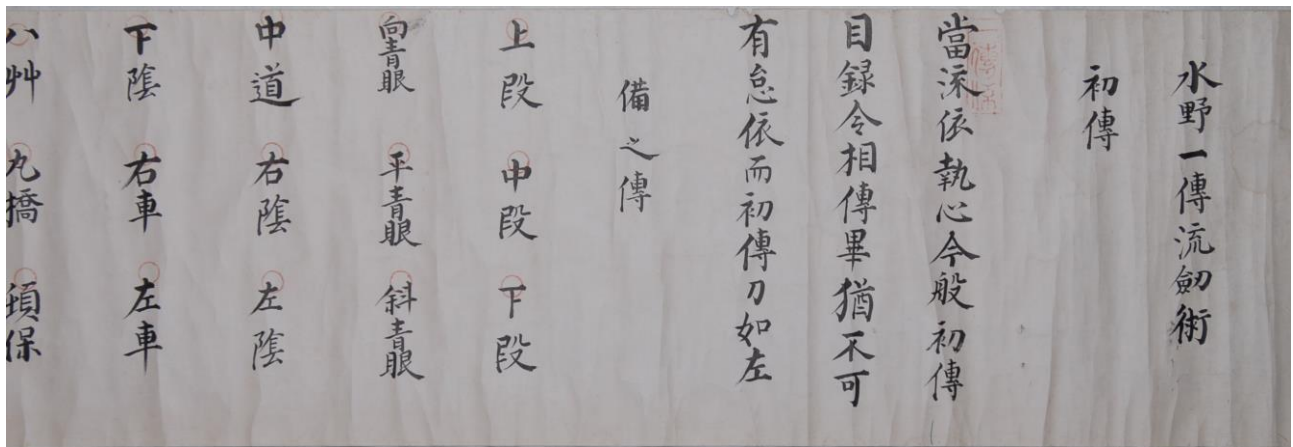 水野一傳流劔術
初傳
當流依執心今般初傳
目録令相傳畢猶不可
有怠依而初傳刀如左
備之傳
上段 中段 下段
向青眼 平青眼 斜青眼
中道 右陰 左陰
下陰 右車 左車
八艸 丸橋 保